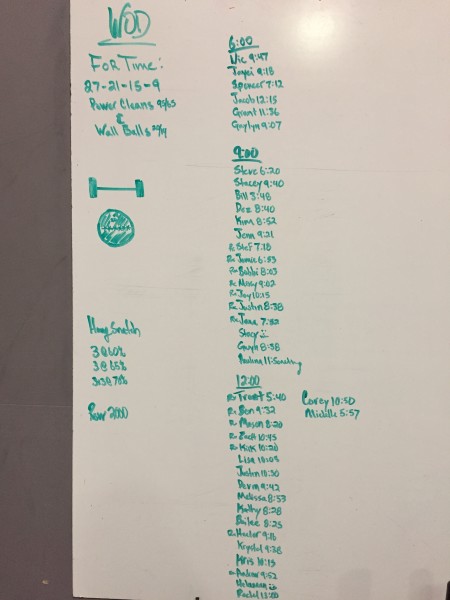 WOD
For Time:
27-21-15-9
Power Cleans 95/65
&
Wall Balls 20/14
Hang Snatch
3@60%
3@65%
3x3@70%
Row 2000
6:00
Vic 9:47
Joyei 9:18
Spencer 7:12
Jacob 12:15
Grant 11:36
Gaylyn 9:07
9:00
Steve 6:20
Stacey 9:40
Bill 3:48
Dez 8:40
Kim 8:52
Jenn 9:21
Rx Stef 7:18
Rx Jamie 6:53
Rx Bobbi 8:03
Rx Missy 9:02
Rx Joy 10:15
Rx Justin 8:38
Rx Jana 7:52
Stacy
Gayla 8:38
Paulina 11:Something
12:00
Rx Trent 5:40
Rx Ben 9:32
Rx Mason 8:20
Rx Zach 10:45
Rx Kirk 10:20
Lisa 10:05
Justin 10:30
Devin 9:42
Melissa 8:53
Kathy 8:28
Bailee 8:25
Rx Hector 9:16
Krystal 9:38
Kris 10:15
Rx Andrew 9:52
Rachel 13:00
Corey 10:50
Michelle 5:57